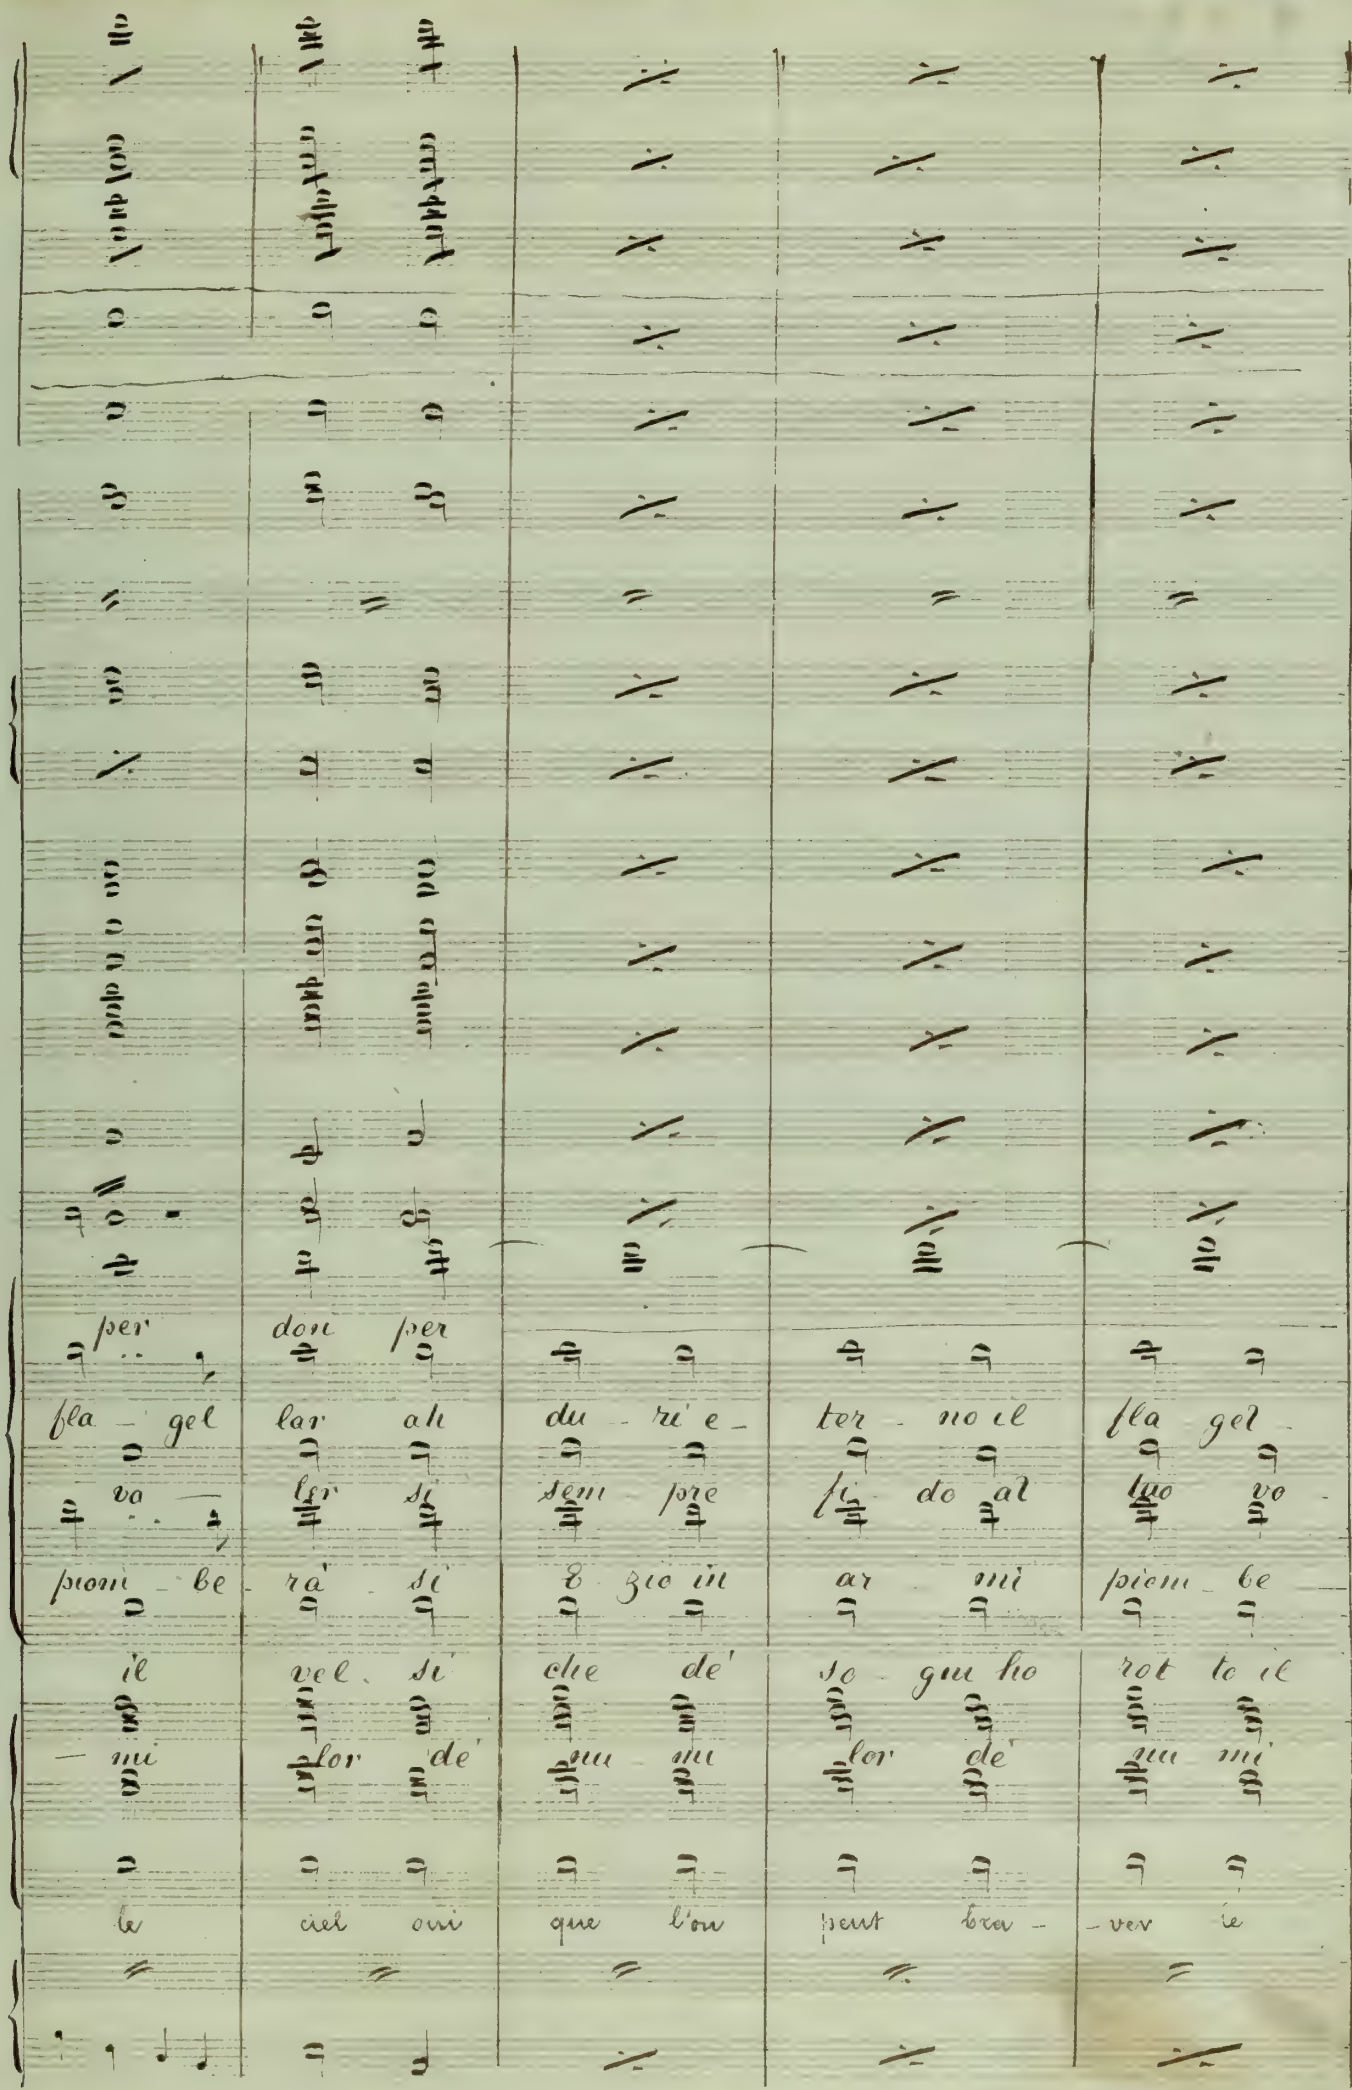 per don per
fla - gel lar ah du - ri e - ter - no il fla gel -
va — ler si sem - pre fi - do al tuo vo -
piom - be - rà - si E - zio in ar - mi piom - be —
il vel. si che de' so - gni ho rot to il
— mi lor de' nu - mi lor de' nu - mi
le ciel oui que l'on peut bra - - ver le